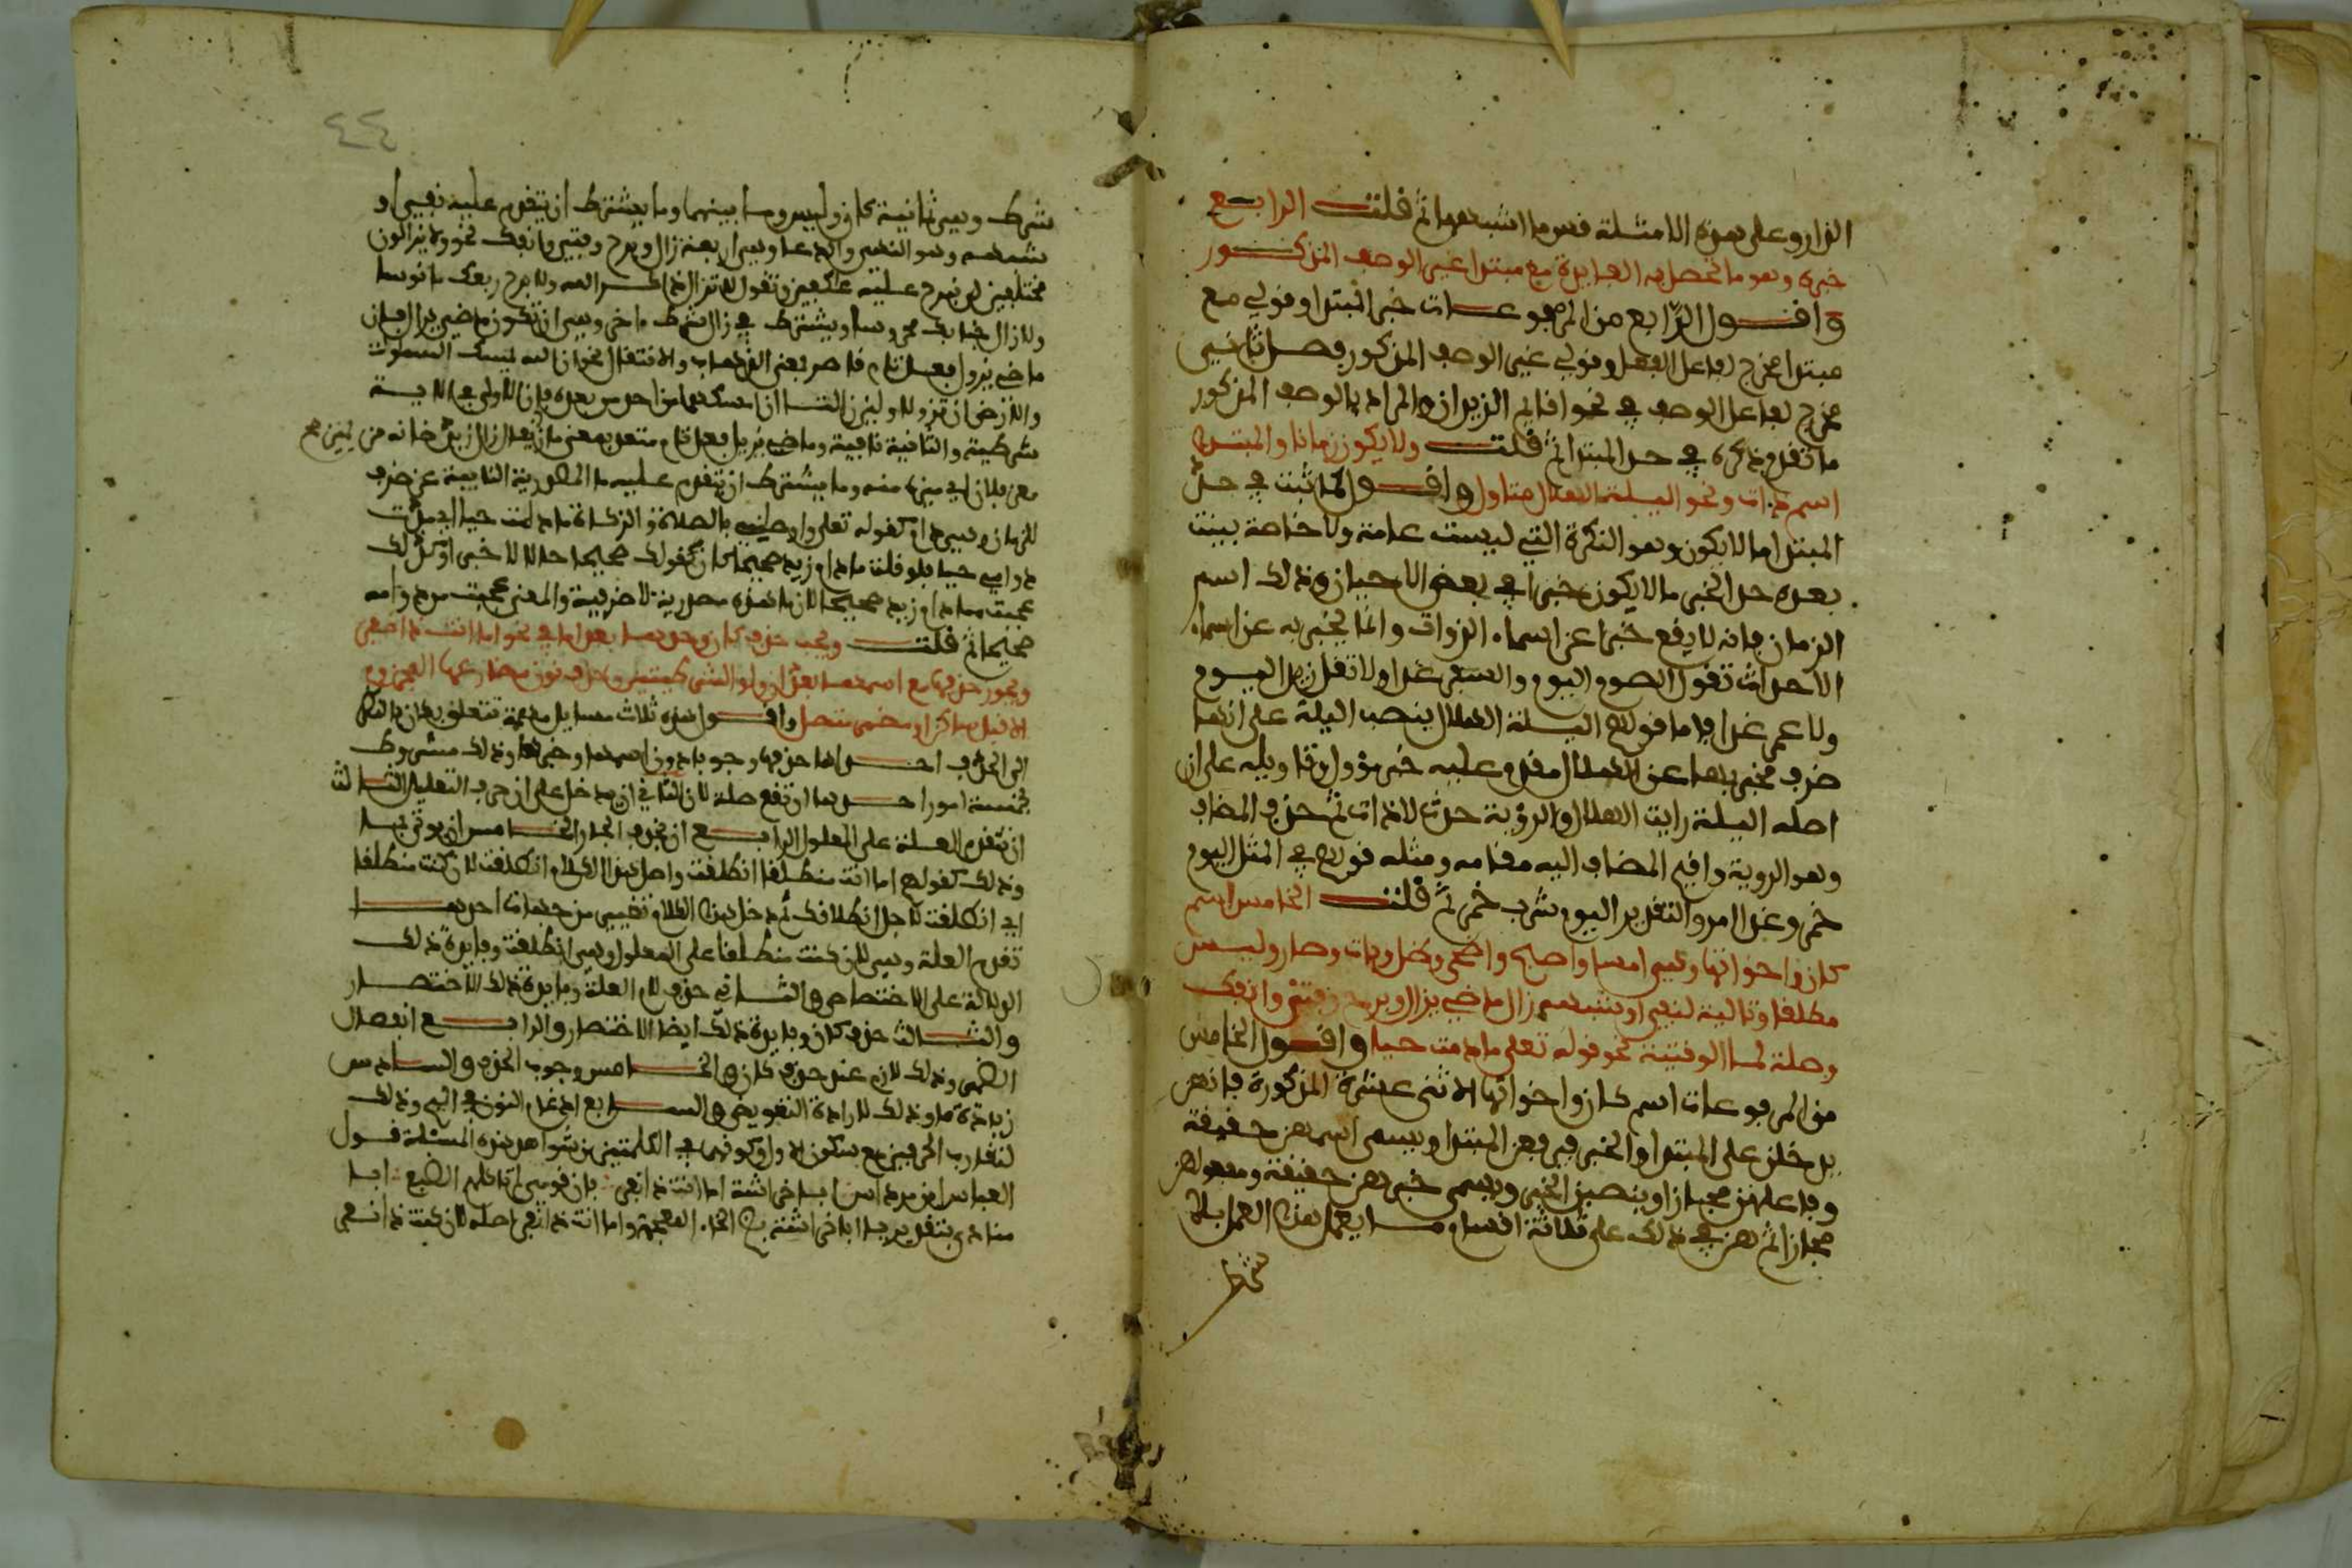 الدار وعلى هذه الامثلة قس ما اشبهها ثم قلت الرابع
خبره وهو ما تحصل به الفايدة مع مبتدا غير الوصف المذكور
واقول الرابع من المرفوعات خبر المبتدا وقولي مع
مبتدا مخرج لفاعل الفعل وقولي غير الوصف المذكور فصل ثاني
مخرج لفاعل الوصف في نحو اقايم الزيدان والمراد بالوصف المذكور
ما تقدم ذكره في حد المبتدا ثم قلت ولا يكون زمانا والمبتدا
اسم ذات ونحو الليلة الهلال متاول واقول لما ثبت في حد
المبتدا ما لا يكون وهو النكرة التي ليست عامة ولا خاصة بينت
بعده حد الخبر ما لا يكون خبرا في بعض الاحيان وذلك اسم
الزمان فانه لا يقع خبرا عن اسماء الذوات وانما يخبر به عن اسماء
الاحداث تقول الصوم اليوم والسفر غدا ولا تقل زيد اليوم
ولا عمر غدا فاما قولهم الليلة الهلال بنصب الليلة على انها
ظرف مخبر بها عن الهلال مقدم عليه خبر مؤول وتاويله على ان
اصله الليلة رايت الهلال والرؤية حدث لا ذات ثم حذف المضاف
وهو الروية واقيم المضاف اليه مقامه ومثله قولهم في المثل اليوم
خمر وغدا امر والتقدير اليوم شرب خمر ثم قلت الخامس اسم
كان واخواتها وهي امسا واصبح واضحى وظل وبات وصار وليس
مطلقا وتالية لنفي او شبهه زال ماضي يزال وبرح وفتئ وانفك
وصلة لما الوقتية نحو قوله تعلى ما دمت حيا واقول الخامس
من المرفوعات اسم كان واخواتها الاثنى عشرة المذكورة فانهن
يدخلن على المبتدا والخبر فيرفعن المبتدا ويسمى اسمهن حقيقة
وفاعلهن مجازا وينصبن الخبر ويسمى خبرهن حقيقة ومفعولهن
مجازا ثم هن في ذلك على ثلاثة اقسام ما يعمل هذا العمل بلا
شرط
٤٤
شرط وهي ثمانية كان وليس وما بينهما وما يشترط ان يتقدم عليه نفي او
شبهه وهو النهي والدعا وهي اربعة زال وبرح وفتئ وانفك نحو ولا يزالون
مختلفين لن نبرح عليه عاكفين وتقول لا تزال ذاكر الله ولا برح ربعك مانوسا
ولا زال جنابك محروسا ويشترط في زال شرط اخر وهي ان تكون ماضي يزال فان
ماضي يزول فعل تام قاصر بمعنى الذهاب والانتقال نحو ان الله يمسك السموات
والارض ان تزولا ولين زالتا ان امسكهما من احد من بعده فان الاولى في الاية
شرطية والثانية نافية وماضي يزيل فعل تام متعد بمعنى ماز يقال زال زيد ضانه من
معز فلان اي ميزه منه وما يشترط ان يتقدم عليه ما المصدرية النايبة عن ظرف
الزمان وهي دام كقوله تعلى واوصاني بالصلاة والزكاة ما دمت حيا اي مدت
دوامي حيا فلو قلت ما دام زيد صحيحا كان كقولك صحيحا حالا لا خبرا وكذلك
عجبت مما دام زيد صحيحا لان ما هذه مصدرية لا ظرفية والمعنى عجبت من دوامه
صحيحا ثم قلت ويجب حذف كان وحدها بعد اما في نحو اما انت ذا نفر
ويجوز حذفها مع اسمها بعد ان ولو الشرطيتين وحذف نون مضارعها المجزوم
الا قبل ساكن او مضمر متصل واقول هذه ثلاث مسايل مهمة تتعلق بكان بالنظر
الى الحذف احداها حذفها وجوبا دون اسمها وخبرها وذلك مشروط
بخمسة امور احدها ان تقع صلة لان الثاني ان يدخل على ان حرف التعليل الثالث
ان تتقدم العلة على المعلول الرابع ان يحذف الجار الخامس ان يوتى بما
وذلك كقولهم اما انت منطلقا انطلقت واصل هذا الكلام انطلقت لان كنت منطلقا
اي انطلقت لاجل انطلاقك ثم دخل هذا الكلام تغيير من جهات احدها
تقديم العلة وهي لان كنت منطلقا على المعلول وهي انطلقت وفايدة ذلك
الدلالة على الاختصاص والثاني حذف لام العلة وفايدة ذلك الاختصار
والثالث حذف كان وفايدة ذلك ايضا الاختصار والرابع انفصال
الضمير وذلك لازم عند حذف كان والخامس وجوب الحذف والسادس
زيادة ما وذلك لارادة التعويض والسابع ادغام النون في الميم وذلك
لتقارب الحرفين مع سكون الاول وكونهما في الكلمتين ومن شواهد هذه المسئلة قول
العباس بن مرداس ابا خراشة اما انت ذا نفر فان قومي لم تاكلهم الضبع ابا
منادى بتقدير يا ابا خراشة بضم الخاء المعجمة واما انت ذا نفر اصله لان كنت ذا نفر